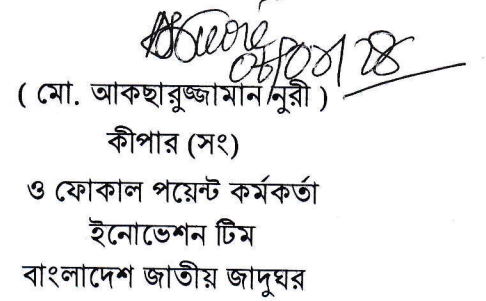 ( মো. আকছারুজ্জামান নুরী )
কীপার (সং)
ও ফোকাল পয়েন্ট কর্মকর্তা
ইনোভেশন টিম
বাংলাদেশ জাতীয় জাদুঘর